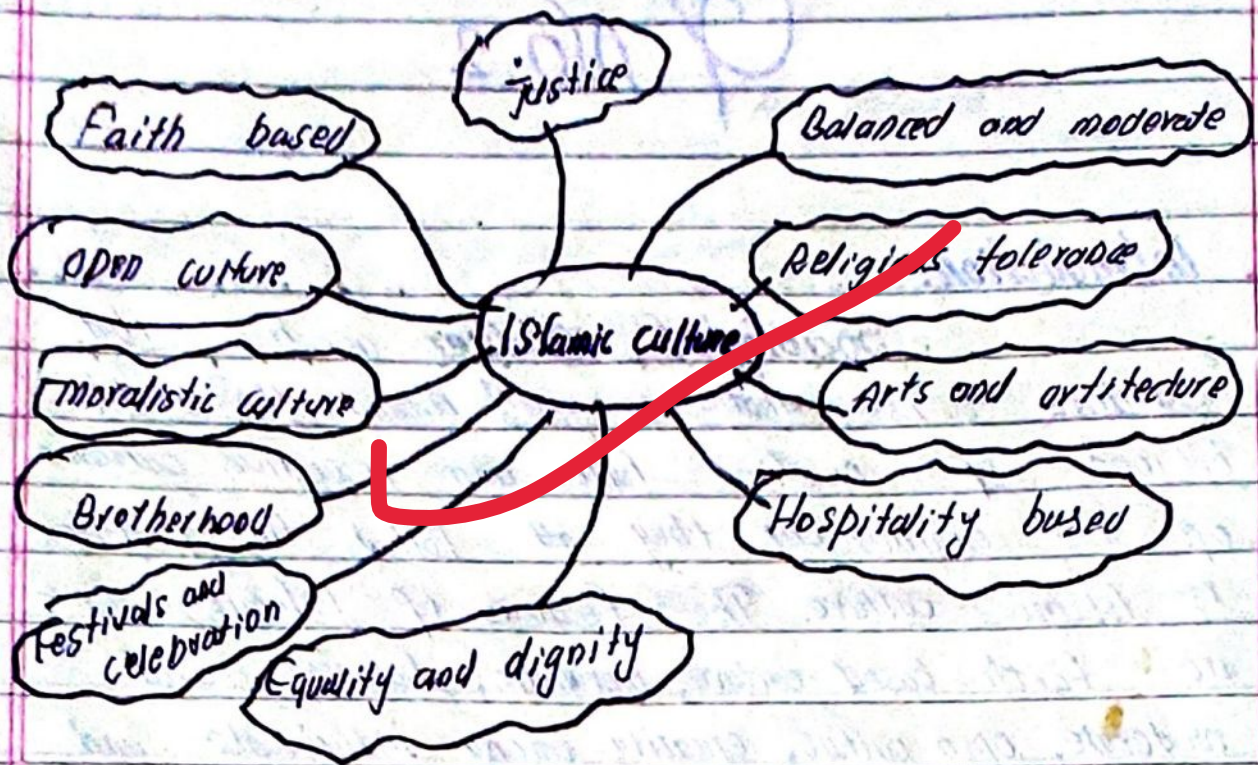 justice
Faith based
Balanced and moderate
open culture
Religious tolerance
Islamic culture
moralistic culture
Arts and artitecture
Brotherhood
Hospitality based
Festivals and
celebration
Equality and dignity